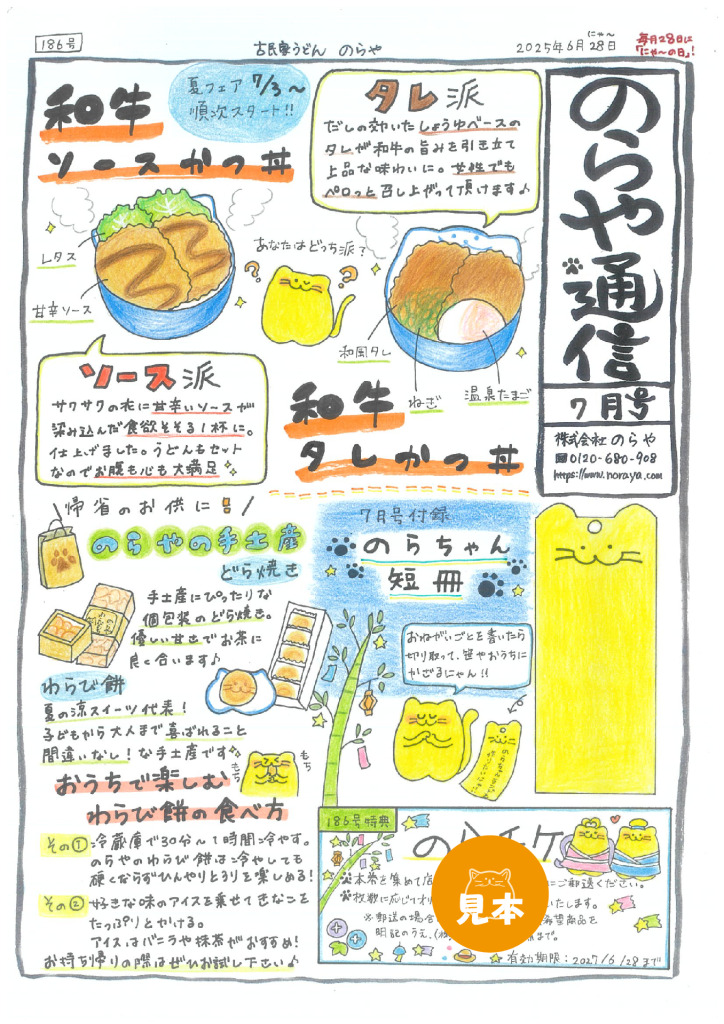 186号
古民家うどん のらや
2025年6月28日
にゃ〜
毎月28日に
「にゃ〜の日」!
のらや通信
7月号
株式会社 のらや
0120-680-908
https://www.noraya.com
和牛
ソースかつ丼
夏フェア 7/3〜
順次スタート!!
タレ派
だしの効いたしょうゆベースの
タレが和牛の旨みを引き立て
上品な味わいに。女性でも
ペロッと召し上がって頂けます♪
レタス
甘辛ソース
あなたはどっち派?
和風タレ
ねぎ
温泉たまご
ソース派
サクサクの衣に甘辛いソースが
染み込んだ食欲そそる1杯に。
仕上げました。うどんもセット
なのでお腹も心も大満足
和牛
タレかつ丼
帰省のお供に!!
のらやの手土産
どら焼き
手土産にぴったりな
個包装のどら焼き。
優しい甘さでお茶に
良く合います♪
わらび餅
夏の涼スイーツ代表!
子どもから大人まで喜ばれること
間違いなし!な手土産です
もち
もち
おうちで楽しむ
わらび餅の食べ方
その① 冷蔵庫で30分〜1時間冷やす。
のらやのわらび餅は冷やしても
硬くならずひんやりとろりを楽しめる!
その② 好きな味のアイスを乗せてきなこを
たっぷりとかける。
アイスはバニラや抹茶がおすすめ!
お持ち帰りの際はぜひお試し下さい♪
7月号付録
のらちゃん
短冊
おねがいごとを書いたら
切り取って、笹やおうちに
かざるにゃん!!
のらちゃんと
186号特典
のらチケ
見本
本券を集めて店
にご郵送ください。
枚数に応じてオリ
いたします。
※郵送の場合
希望商品を
明記のうえ、(株
まで。
有効期限:2027/6/28まで